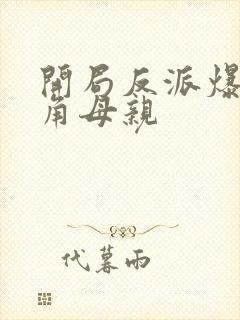 開局反派爆
角母親
代暮雨